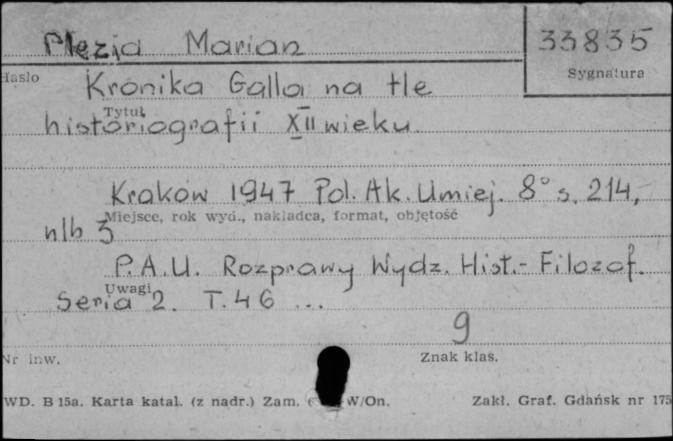 Plezia Marian
33835
Hasło
Sygnatura
Kronika Galla na tle
Tytuł
historiografii XII wieku.
Kraków 1947 Pol. Ak. Umiej. 8° s. 214,
Miejsce, rok wyd., nakładca, format, objętość
nlb 3
P.A.U. Rozprawy Wydz. Hist.- Filozof.
Uwagi
Seria 2. T. 46 ...
9
Nr inw.
Znak klas.
WD. B 15a. Karta katal. (z nadr.) Zam. W/On.
Zakł. Graf. Gdańsk nr 175